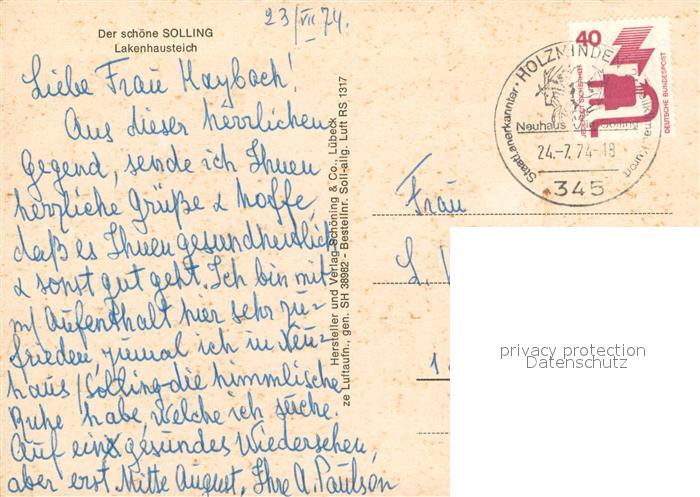 23/VII 74.
Der schöne SOLLING
Lakenhausteich
Liebe Frau Maybach!
Aus dieser herrlichen
Gegend, sende ich Ihnen
herzliche Grüße & hoffe,
daß es Ihnen gesundheitlich
& sonst gut geht. Ich bin mit
m/ Aufenthalt hier sehr zu-
frieden, zumal ich in Neu-
haus/Solling die himmlische
Ruhe habe, welche ich suche.
Auf ein gesundes Wiedersehen,
aber erst Mitte August, Ihre A. Paulsen
Hersteller und Verlag Schöning & Co., Lübeck
ze Luftaufn., gen. SH 38982 - Bestellnr. Soll-allg. Luft RS 1317
40
JEDERZEIT SICHERHEIT
DEUTSCHE BUNDESPOST
HOLZMINDEN
Staatl. anerkannter
Kurort
Neuhaus im Solling
24.-7.74-18
345
Frau
L.
1
privacy protection
Datenschutz